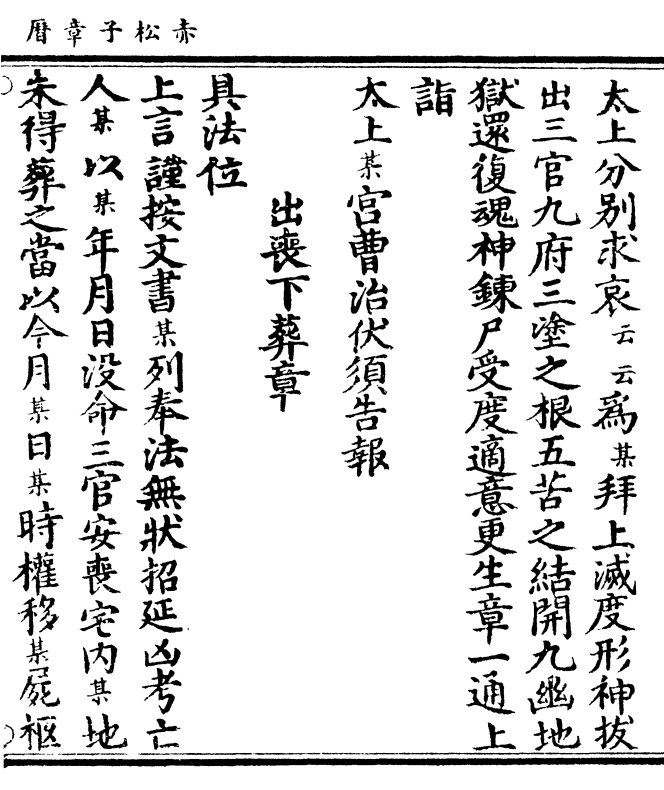 赤松子章曆
太上分別求哀云云爲某拜上滅度形神拔
出三官九府三塗之根五苦之結開九幽地
獄還復魂神鍊尸受度適意更生章一通上
詣
太上某宮曹治伏須告報
出喪下葬章
具法位
上言謹按文書某列奉法無狀招延凶考亡
人某以某年月日没命三官安喪宅内某地
未得葬之當以今月某日某時權移某屍柩